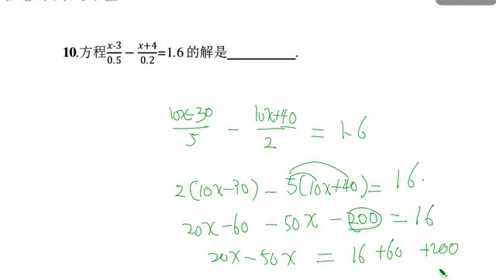 10.方程(x-3)/0.5 − (x+4)/0.2=1.6 的解是__________.
(10x-30)/5 − (10x+40)/2 = 1.6
2(10x-30) − 5(10x+40) = 16.
20x-60 − 50x − 200 = 16
20x-50x = 16 +60 +200